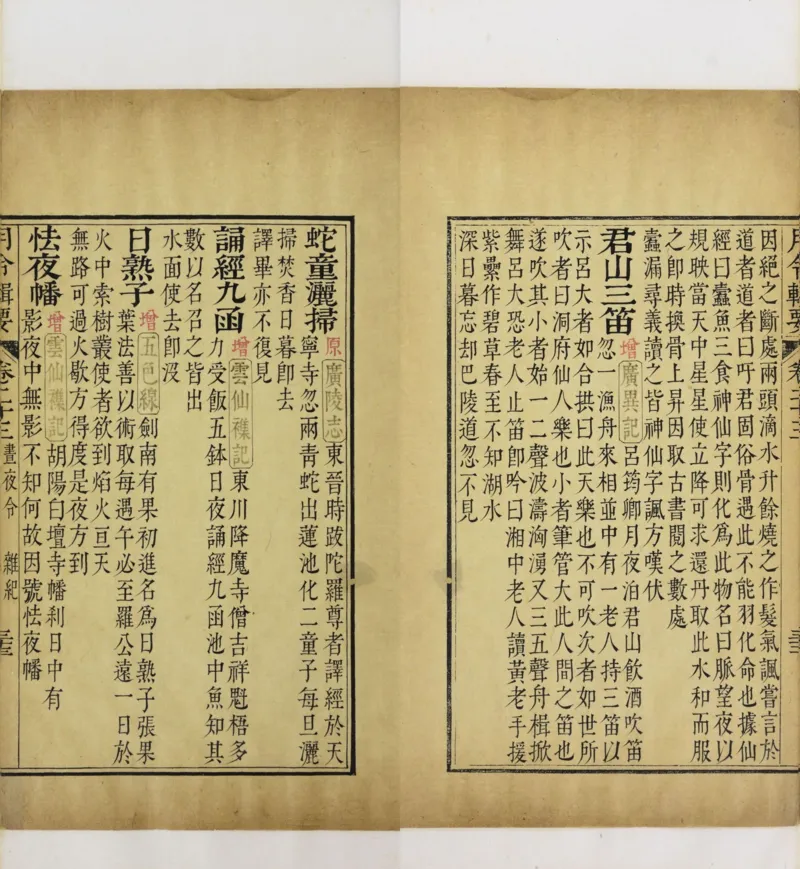 月令輯要 卷二十三
因絕之斷處兩頭滴水升餘燒之作髮氣諷嘗言於
道者道者曰吁君固俗骨遇此不能羽化命也據仙
經曰蠹魚三食神仙字則化為此物名曰脈望夜以
規映當天中星星使立降可求還丹取此水和而服
之即時換骨上昇因取古書閱之數處
蠹漏尋義讀之皆神仙字諷方嘆伏
君山三笛 增 廣異記 呂筠卿月夜泊君山飲酒吹笛
忽一漁舟來相並中有一老人持三笛以
示呂大者如合拱曰此天樂也不可吹次者如世所
吹者曰洞府仙人樂也小者筆管大此人間之笛也
遂吹其小者始一二聲波濤洶湧又三五聲舟楫掀
舞呂大恐老人止笛即吟曰湘中老人讀黃老手援
紫纍作碧草春至不知湖水
深日暮忘却巴陵道忽不見
蛇童灑掃 原 廣陵志 東晉時跋陀羅尊者譯經於天
寧寺忽兩靑蛇出蓮池化二童子每旦灑
掃焚香日暮即去
譯畢亦不復見
誦經九函 增 雲仙襍記 東川降魔寺僧吉祥魁梧多
力受飯五鉢日夜誦經九函池中魚知其
數以名召之皆出
水面使去卽沒
日熟子 增 五色線 劍南有果初進名爲日熟子張果
葉法善以術取每遇午必至羅公遠一日於
火中索樹叢使者欲到焰火亘天
無路可過火歇方得度是夜方到
怯夜幡 增 雲仙襍記 胡陽白壇寺幡刹日中有
影夜中無影不知何故因號怯夜幡
月令輯要 卷二十三 晝夜令 雜紀